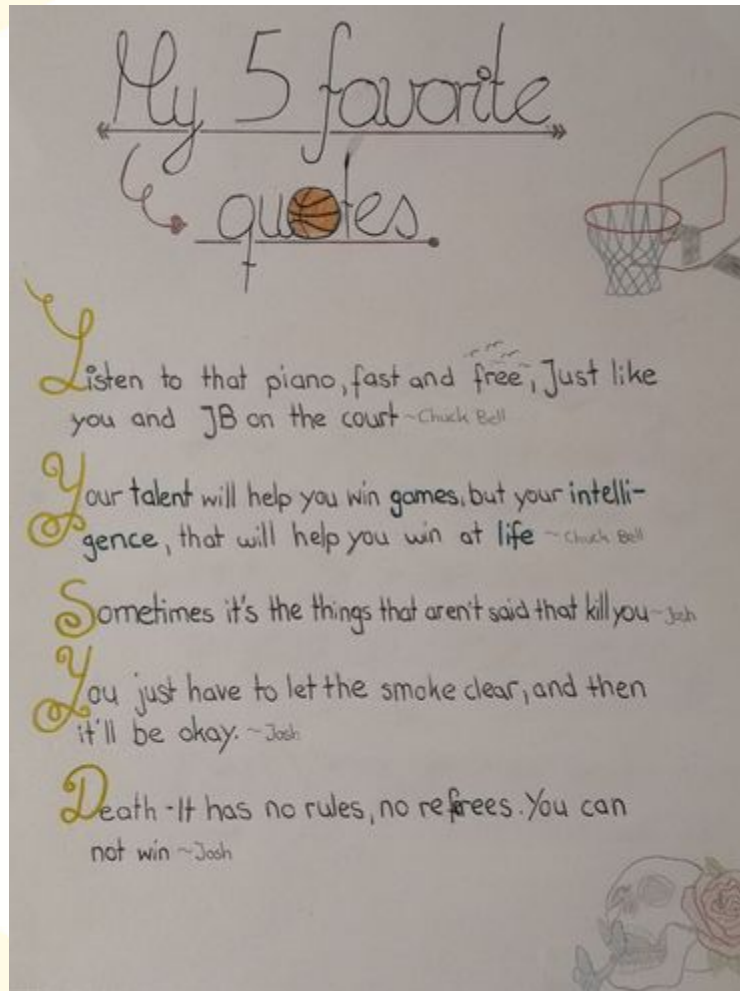 My 5 favorite
quotes
Listen to that piano, fast and free, Just like
you and JB on the court ~Chuck Bell
Your talent will help you win games, but your intelli-
gence, that will help you win at life ~Chuck Bell
Sometimes it's the things that aren't said that kill you ~Josh
You just have to let the smoke clear, and then
it'll be okay. ~Josh
Death - It has no rules, no refrees. You can
not win ~Josh